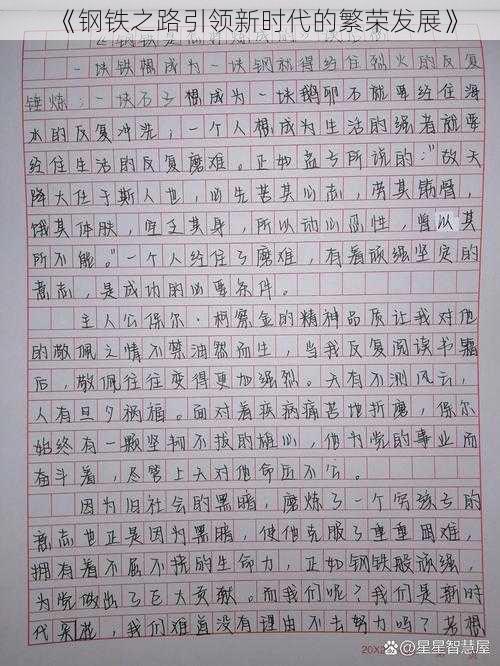 《钢铁之路引领新时代的繁荣发展》
一块铁想成为一块钢就得经住烈火的反复
锤炼；一块石子想成为一块鹅卵石就要经住海
水的反复冲洗；一个人想成为生活的强者就要
经住生活的反复磨难。正如孟子所说的："故天
降大任于斯人也，必先苦其心志，劳其筋骨，
饿其体肤，空乏其身，所以动心忍性，曾以其
所不能。"一个人经住了磨难，有着顽强坚定的
意志，是成功的必要条件。
主人公保尔·柯察金的精神品质让我对他
的敬佩之情不禁油然而生，当我反复阅读书籍
后，敬佩往往变得更加强烈。天有不测风云，
人有旦夕祸福。面对着疾病痛苦地折磨，保尔
始终有一颗坚韧不拔的雄心，他为党的事业而
奋斗着，尽管上天对他命运不公。
因为旧社会的黑暗，磨炼了一个穷孩子的
意志也正是因为黑暗，使他克服了重重困难，
拥有着不屈不挠的生命力，正如钢铁般顽强，
为党做出了巨大贡献。而我们呢？我们是新时
代，我们难道没有理由不去努力吗？若想
20X2
星星智慧屋